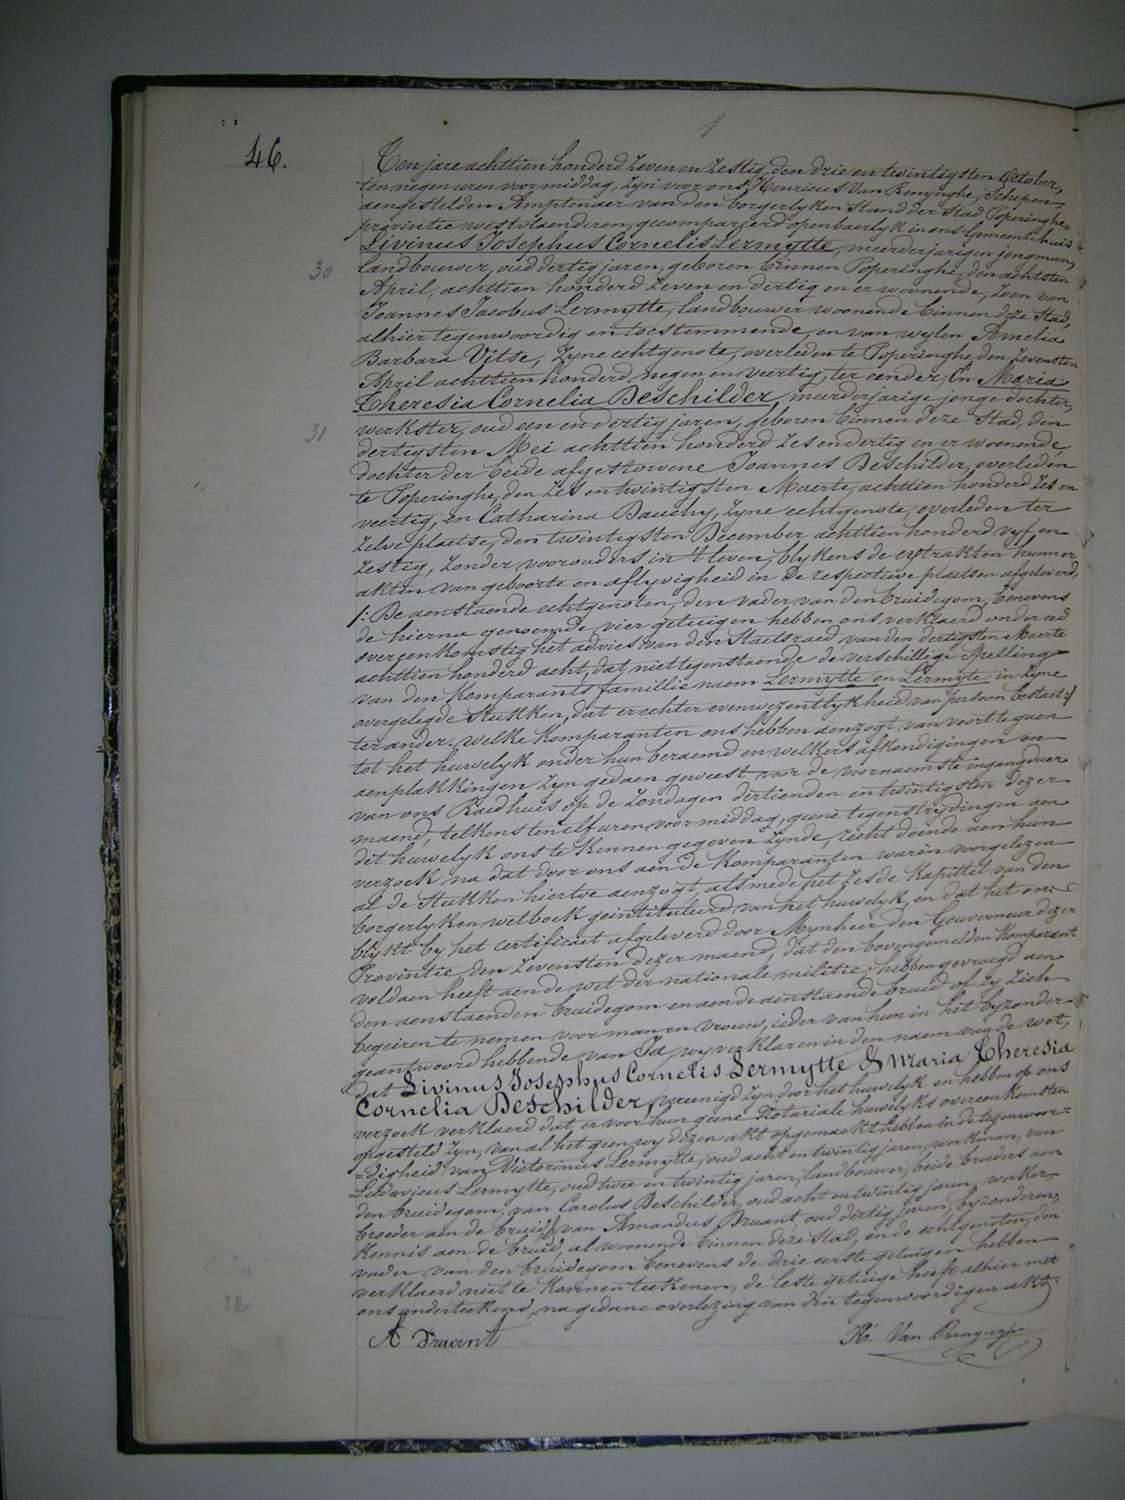 1
46.
Ten jare achttien honderd zeven en zestig, den drie en twintigsten October,
ten negen uren voormiddag, zyn voor ons Henricus Van Renynghe, Schepen
aengestelden Amptenaer van den borgerlyken Stand der Stad Poperinghe,
provintie westvlaenderen, gecompareerd openbaerlyk in ons Gemeentehuis
Livinus Josephus Cornelis Lermytte, meerderjarigen jongman,
30
landbouwer, oud dertig jaren, geboren binnen Poperinghe, den achtsten
April, achttien honderd zeven en dertig en er woonende, zoon van
Joannes Jacobus Lermytte, landbouwer woonende binnen deze Stad,
alhier tegenwoordig en toestemmende, en van wylen Amelia
Barbara Vitse, zyne echtgenote, overleden te Poperinghe, den zevensten
April achttien honderd negen en veertig, ter eender; En Maria
Theresia Cornelia Deschilder, meerderjarige jonge dochter,
31
werkster, oud een en dertig jaren, geboren binnen deze Stad, den
dertigsten Mei achttien honderd zes en dertig en er woonende,
dochter der beide afgestorvene Joannes Deschilder, overleden
te Poperinghe, den zes en twintigsten Maerte, achttien honderd zes en
veertig, en Catharina Bauchy, zyne echtgenote, overleden ter
zelve plaetse, den twintigsten December achttien honderd vyf en
zestig, zonder voorouders in 't leven, blykens de extrakten hunner
akten van geboorte en aflyvigheid in de respectieve plaetsen afgeleverd,
/: De aenstaende echtgenoten, den vader van den bruidegom, benevens
de hierna genoemde vier getuigen hebben ons verklaerd onder eed
overeenkomstig het advies van den Staetsraed van den dertigsten Maerte
achttien honderd acht, dat niettegenstaende de verschillige spelling
van den Komparants famillienaem Lermytte en Lermyte in zyne
overgelegde stukken, dat er echter eenwezentlykheid van persoon bestaet :/
ter ander. welke Komparanten ons hebben aenzogt, van voort te gaen
tot het huwelyk onder hun beraemd en welkers afkondigingen en
aenplakkingen zyn gedaen geweest voor de voornaemste ingangdeur
van ons Raedhuis op de Zondagen dertienden en twintigsten dezer
maend, telkens ten elf uren voormiddag, geene tegenstrydingen aen
dit huwelyk ons te kennen gegeven zynde, recht doende aen hun
verzoek na dat door ons aen de Komparanten waren voorgelezen
al de Stukken hiertoe aenzogt, alsmede het zesde Kapittel van den
borgerlyken wetboek geintituleerd van het huwelyk, en dat het ons
blykt by het certificaet afgeleverd door Mynheer den Gouverneur dezer
Provintie, den zevensten dezer maend, dat den bovengemelden Komparant
voldaen heeft aen de wet der nationale militie; hebben gevraegd aen
den aenstaenden bruidegom en aen de aenstaende bruid of zy zich
begeiren te nemen voor man en vrouw, ieder van hun in het byzonder
geantwoord hebbende van Ja, wy verklaren in den naem van de wet,
dat Livinus Josephus Cornelis Lermytte & Maria Theresia
Cornelia Deschilder, vereenigd zyn door het huwelyk en hebben op ons
verzoek verklaerd dat er voor hun geene Notariale huwelyks overeenkomsten
opgesteld zyn, van al het geen wy dezen akt opgemaekt hebben in de tegenwoor=
=digheid van Victorinus Lermytte, oud acht en twintig jaren, werkman, van
Ludovicus Lermytte, oud twee en twintig jaren, landbouwer, beide broeders aen
den bruidegom, van Carolus Deschilder, oud acht en twintig jaren, werker,
broeder aen de bruid & van Amandus Druant, oud dertig jaren, byzonderen,
Kennis aen de bruid, al woonende binnen deze Stad, en de echtgenoten, den
vader van den bruidegom benevens de drie eerste getuigen hebben
verklaerd niet te Konnen teekenen, de leste getuige heeft alhier met
ons onderteekend, na gedane overlezing van den tegenwoordigen akt.
A Druant
H. Van Renynghe